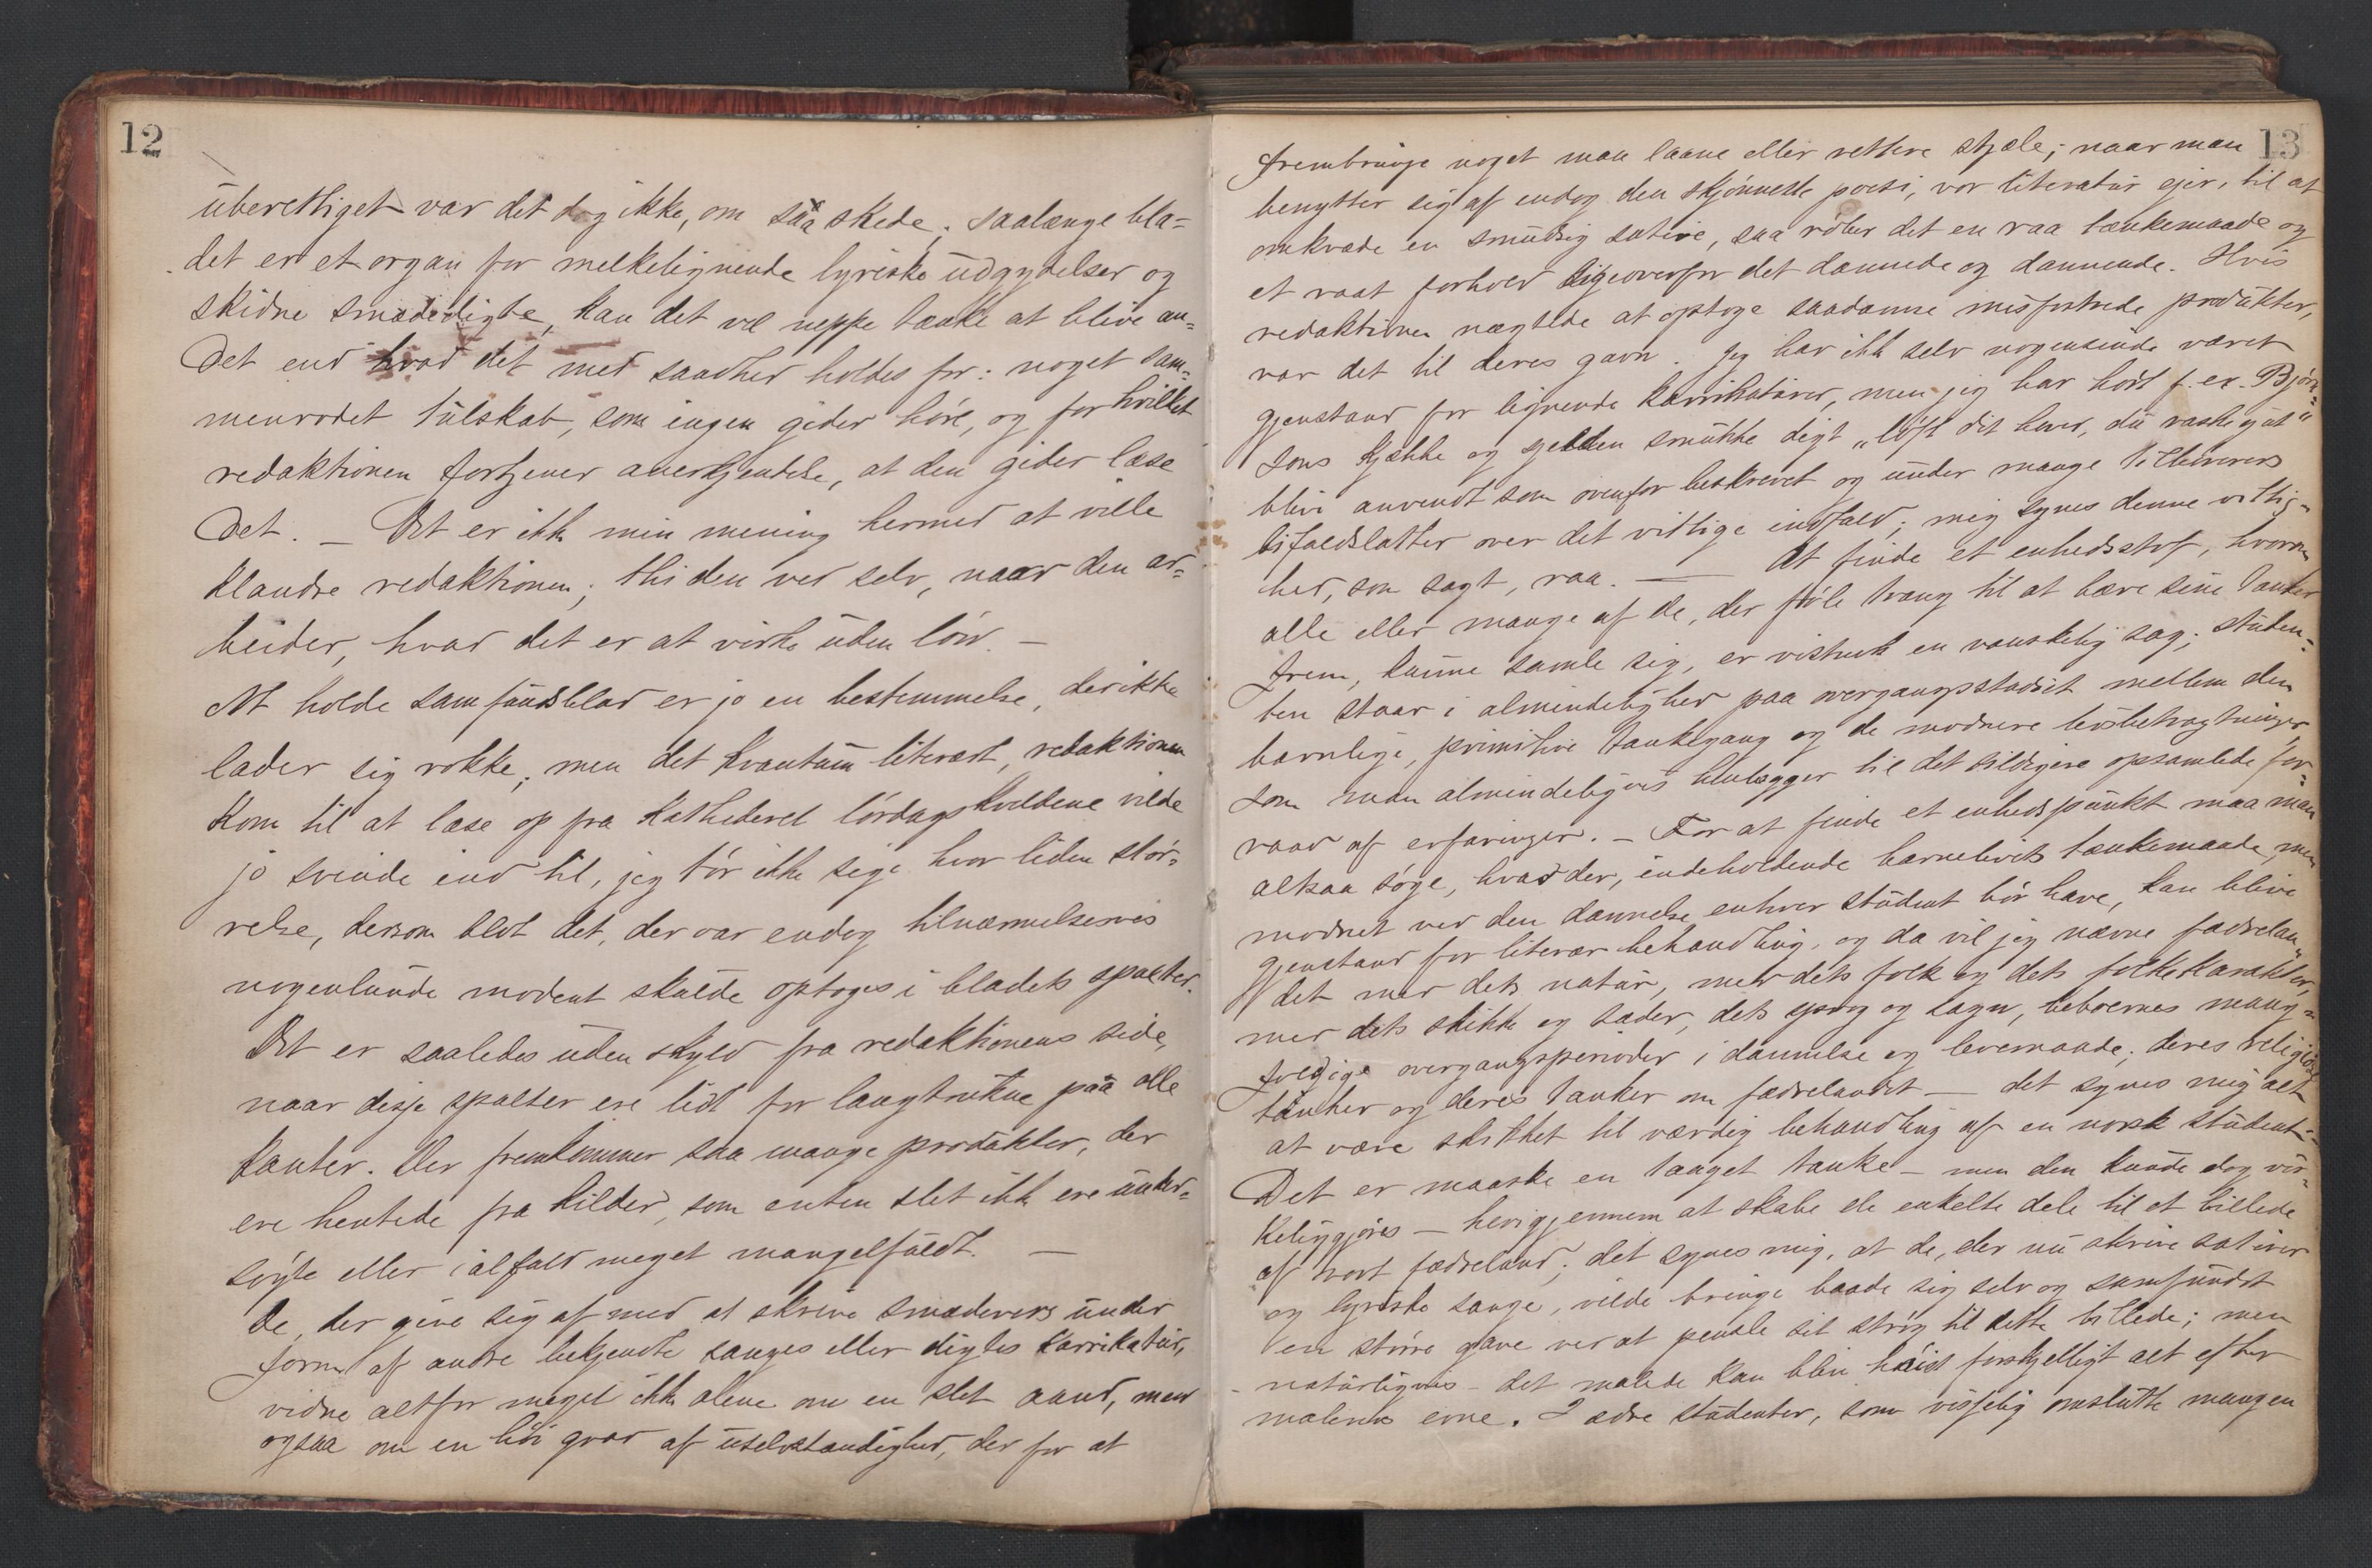 12
uberettiget var det dog ikke, om saa skede; saalænge bla=
det er et organ for melkelignende lyriske udgydelser og
skidne smædedigte, kan det vel neppe tænke at blive an=
det end hvad det med sandhed holdes for: noget sam=
menrodet tulskab, som ingen gider høre, og for hvilket
redaktionen fortjener anerkjendelse, at den gider læse
det. — Det er ikke min mening hermed at ville
klandre redaktionen; thi den ved selv, naar den ar=
beider, hvad det er at virke uden løn. —
At holde samfundsblad er jo en bestemmelse, der ikke
lader sig rokke; men det kvantum literært, redaktionen
kom til at læse op fra kathederet lørdagskveldene vilde
jo svinde ind til, jeg tør ikke sige hvor liden stør=
relse, dersom blot det, der var endog tilnærmelsesvis
nogenlunde modent skulde optages i bladets spalter.
Det er saaledes uden skyld fra redaktionens side,
naar disse spalter ere lidt for langtrukne paa alle
kanter. Der fremkommer saa mange produkter, der
ere hentede fra kilder, som enten slet ikke ere under=
søgte eller ialfald meget mangelfuldt. —
De, der give sig af med at skrive smædevers under
form af andre bekjendte sanges eller digtes karrikatur,
vidne altfor meget ikke alene om en slet aand, men
ogsaa om en høi grad af uselvstændighed, der for at
13
frembringe noget maa laane eller rettere stjæle; naar man
benytter sig af endog den skjønneste poesi, vor literatur ejer, til at
omkvæde en smudsig satire, saa røber det en raa tænkemaade og
et raat forhold ligeoverfor det dannede og dannende. Hvis
redaktionen nægtede at optage saadanne misfostrede produkter,
var det til deres gavn. Jeg har ikke selv nogensinde været
gjenstand for lignende karrikaturer, men jeg har hørt f. ex. Bjørn=
sons kjække og sjelden smukke digt „løft dit hoved, du raske gut“
blive anvendt som ovenfor beskrevet og under mange tilhøreres
bifaldslatter over det vittige indfald; mig synes denne vittig=
hed, som sagt, raa. — At finde et enhedsstof, hvorom
alle eller mange af de, der føle trang til at bære sine tanker
frem, kunne samle sig, er vistnok en vanskelig sag; studen=
ten staar i almindelighed paa overgangsstadiet mellem den
barnlige, primitive tankegang og de modnere livsbetragtninger,
som man almindeligvis henlægger til det sildigere opsamlede for=
raad af erfaringer. — For at finde et enhedspunkt maa man
altsaa søge, hvad der, indeholdende barnelivets tænkemaade, men
modnet ved den dannelse enhver student bør have, kan blive
gjenstand for literær behandling, og da vil jeg nævne fædrelan=
det med dets natur, med dets folk og dets folkekarakter,
med dets skikke og sæder, dets sprog og sagn, beboernes mang=
foldige overgangsperioder i dannelse og levemaade; deres religiøse
tanker og deres tanker om fædrelandet — det synes mig alt
at være skikket til værdig behandling af en norsk student. —
Det er maaske en taaget tanke — men den kunde dog vir=
keliggjøres — herigjennem at skabe de enkelte dele til et billede
af vort fædreland; det synes mig, at de, der nu skrive satirer
og lyriske sange, vilde bringe baade sig selv og samfundet
en større gave ved at pensle sit strøg til dette billede; men
naturligvis — det malede kan blive høist forskjelligt alt efter
malerens evne. I ædre studenter, som visselig omslutte mangen